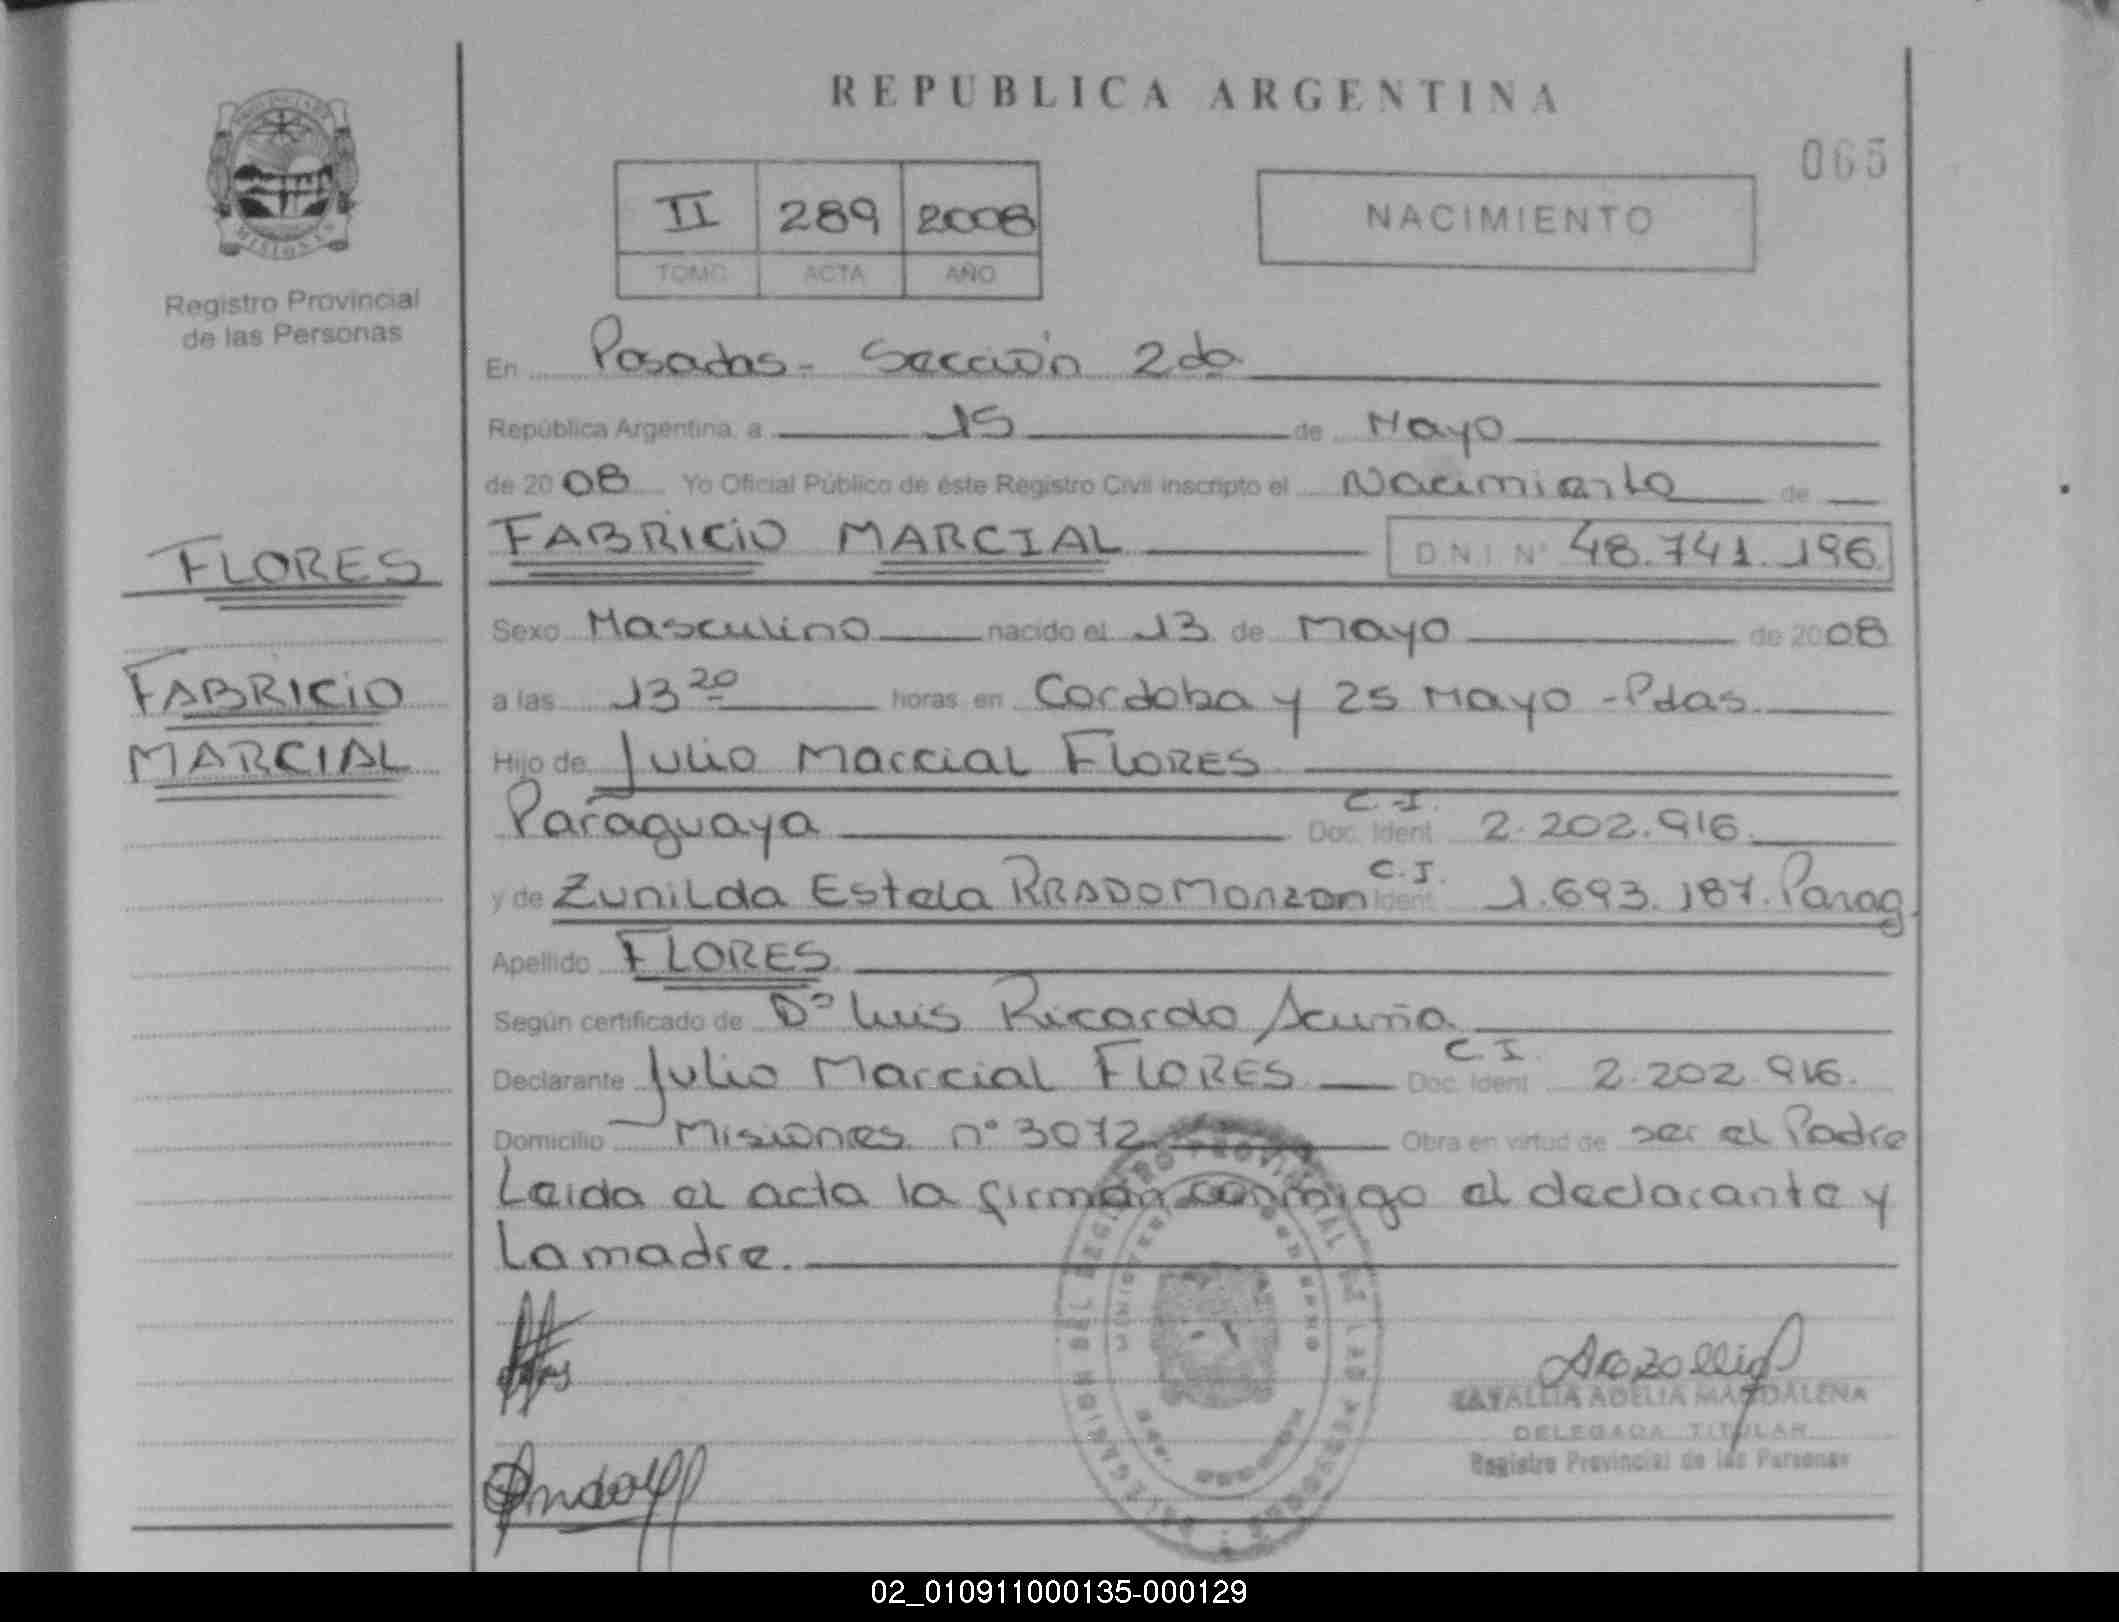 REPUBLICA ARGENTINA
065
II 289 2008
TOMO ACTA AÑO
NACIMIENTO
PROVINCIA DE MISIONES
Registro Provincial
de las Personas
FLORES
FABRICIO
MARCIAL
En Posadas - Sección 2da
República Argentina, a 15 de Mayo
de 2008 Yo Oficial Público de éste Registro Civil inscripto el Nacimiento de
FABRICIO MARCIAL D N I Nº 48.741.196
Sexo Masculino nacido el 13 de Mayo de 2008
a las 13 20 horas en Cordoba y 25 Mayo - Pdas.
Hijo de Julio Marcial FLORES
Paraguaya C.I. Doc. Ident. 2.202.916.
y de Zunilda Estela Monzon C.I. Ident. 1.693.187. Parag.
Apellido FLORES
Según certificado de Dº Luis Ricardo Acuña
Declarante Julio Marcial FLORES C.I. Doc. Ident. 2.202.916.
Domicilio Misiones nº 3072 Obra en virtud de ser el Padre
Leida el acta la firman conmigo el declarante y
la madre.
ADELIA MAGDALENA
DELEGADA TITULAR
Registro Provincial de las Personas
02_010911000135-000129